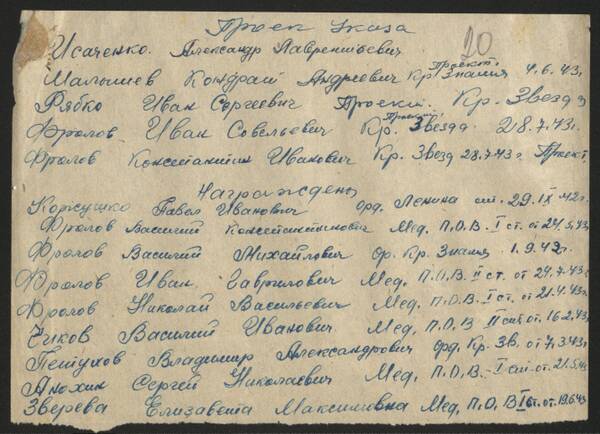 Проек Указа
20
Исаченко. Александр Лаврентьевич
Малышев Кондрат Андреевич Кр. Знамя Проект. 4.6.43г.
Рябко Иван Сергеевич Проект. Кр. Звезд
Фролов Иван Савельевич Кр. Звезда Проект. 28.7.43г.
Фролов Константин Иванович Кр. Звезд 28.7.43г. Проект.
Награждены
Павел Иванович орд. Ленина от. 29.IX.42г.
Фролов Василий Константинович Мед. П.О.В. I ст. от 24.5.43г
Фролов Василий Михайлович ор. Кр. Знамя 1.9.42г.
Фролов Иван Гаврилович Мед. П.О.В. II ст. от 24.7.43г
Фролов Николай Васильевич Мед. П.О.В. I ст. от 21.4.43г
Чиков Василий Иванович Мед. П.О.В. II ст. от 16.2.43г.
Петухов Владимир Александрович орд. Кр. Зв. от 7.3.43г.
Анохин Сергей Николаевич Мед. П.О.В. I ст. от. 21.5.43
Зверева Елизавета Максимовна Мед. П.О.В I ст. от. 19.6.43